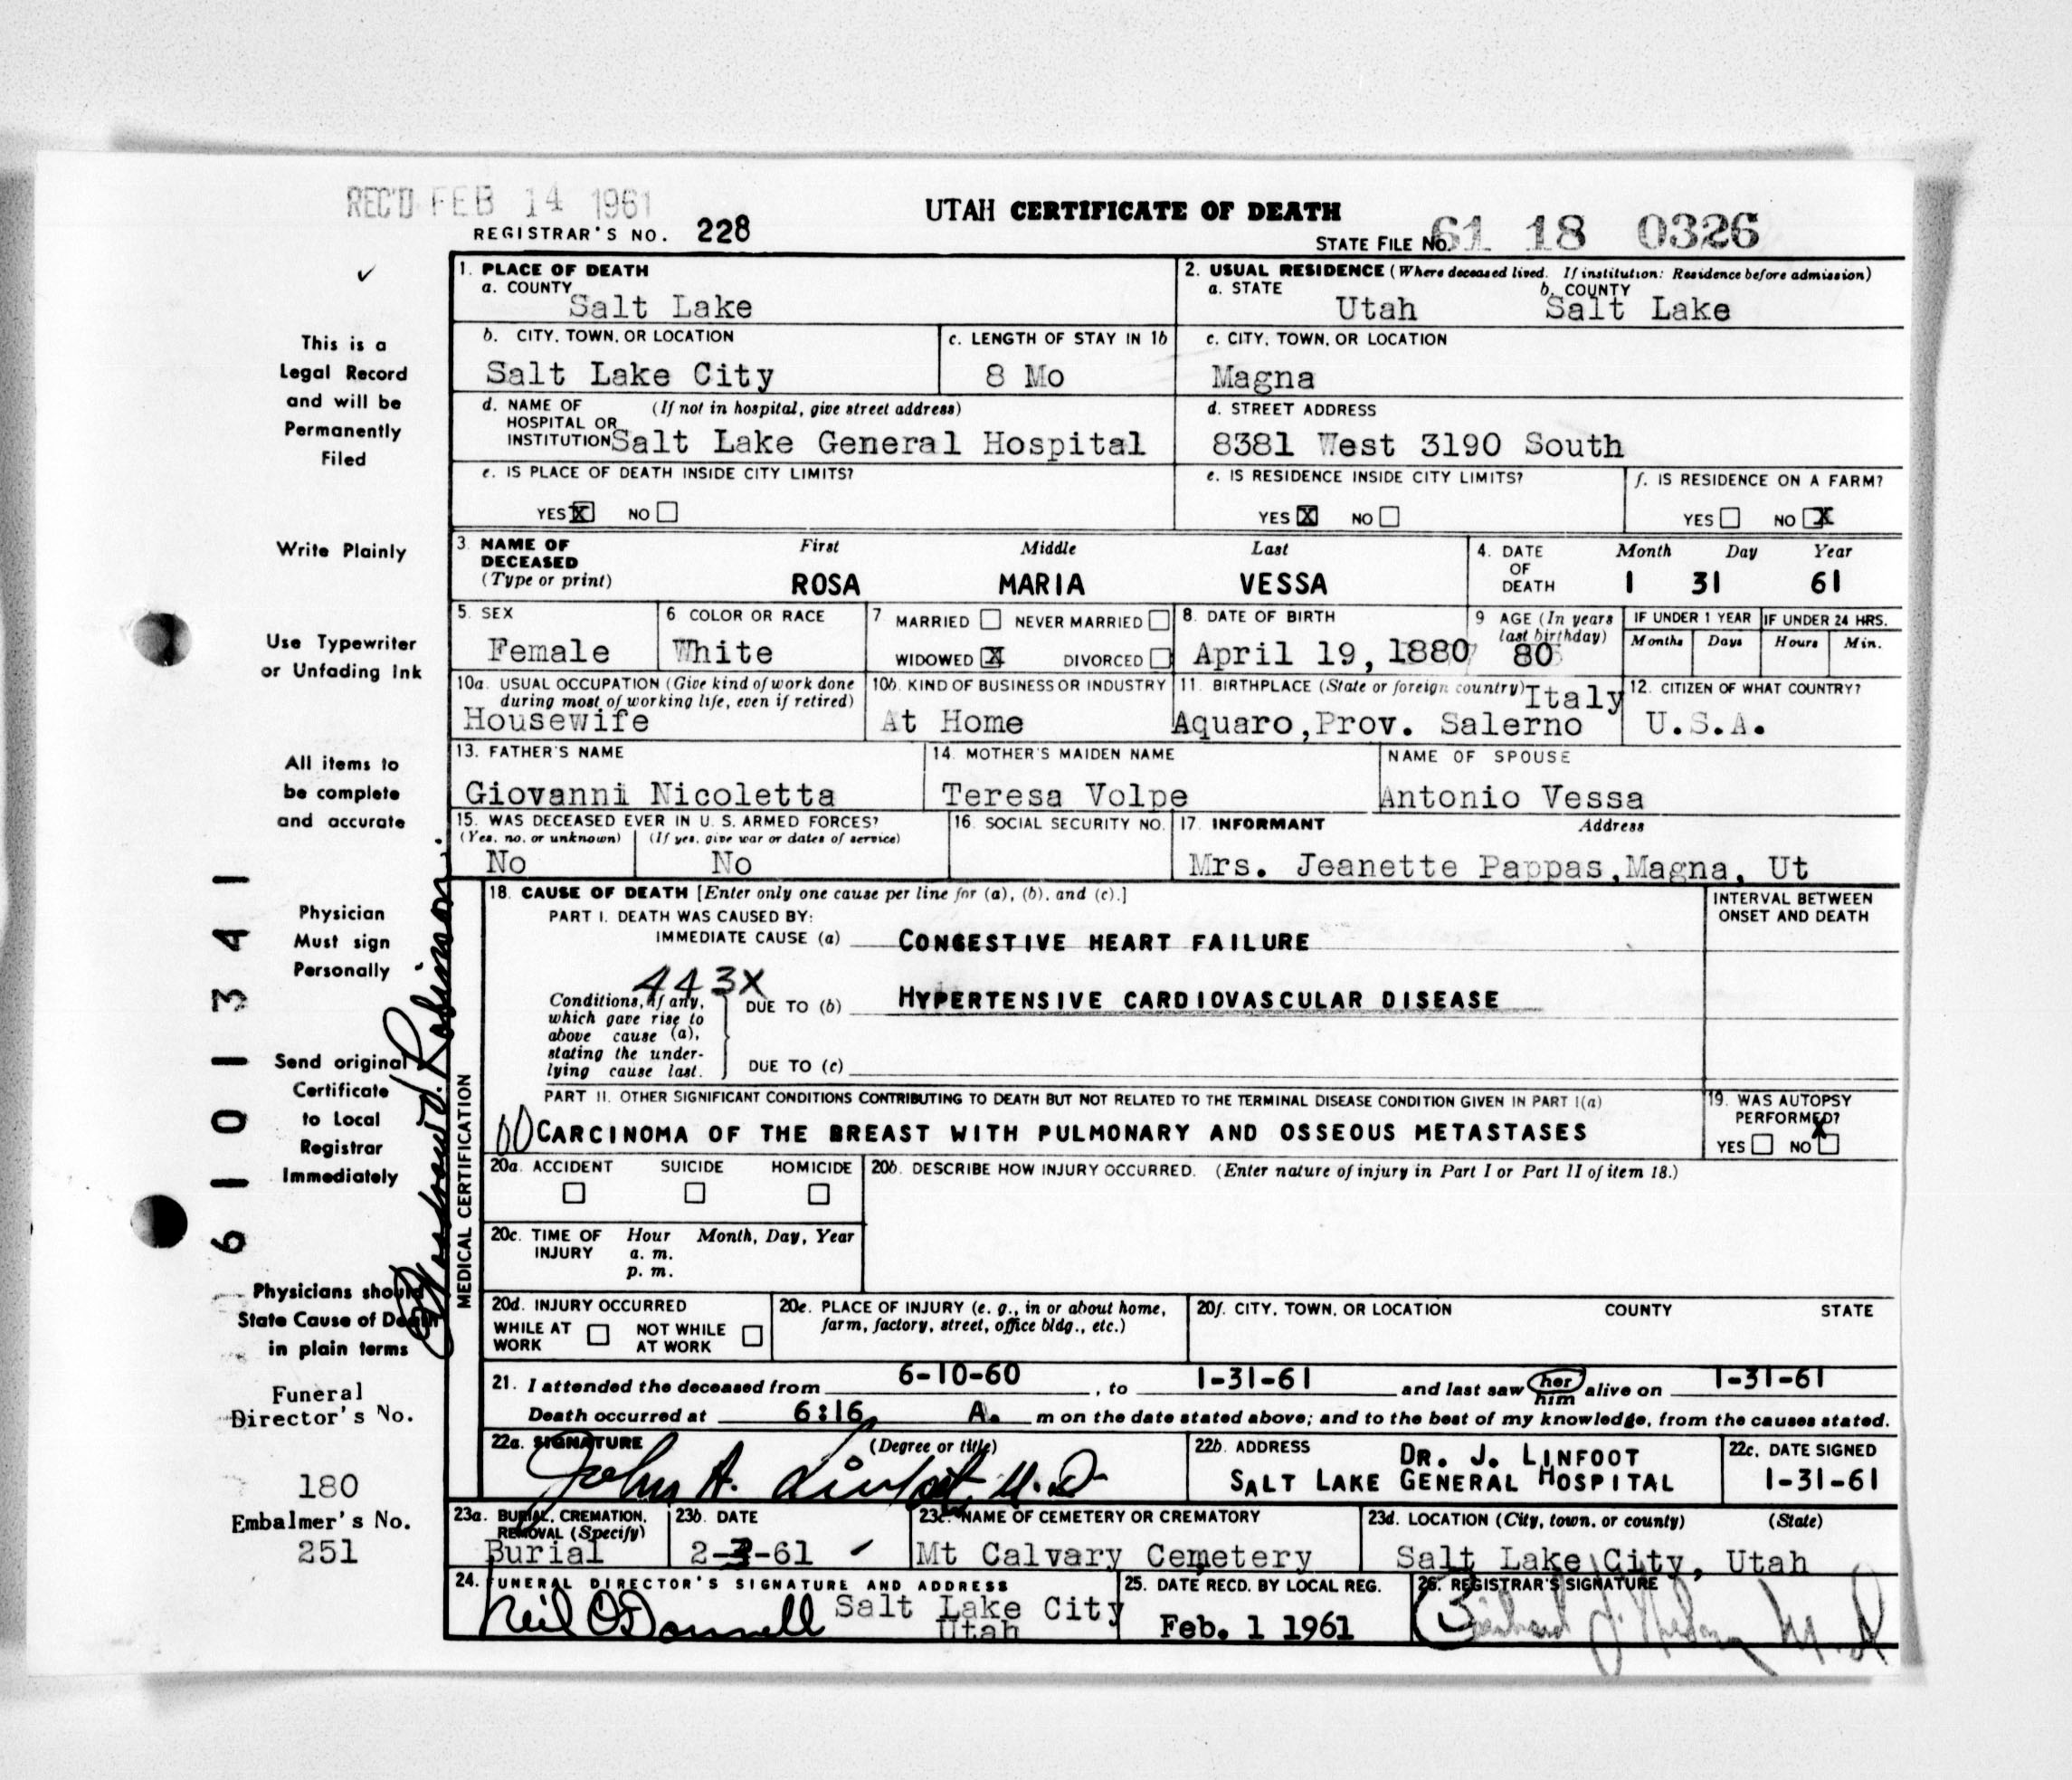 REC'D FEB 14 1961
UTAH CERTIFICATE OF DEATH
REGISTRAR'S NO. 228
STATE FILE No. 61 18 0326
This is a
Legal Record
and will be
Permanently
Filed
Write Plainly
Use Typewriter
or Unfading Ink
All items to
be complete
and accurate
Physician
Must sign
Personally
Send original
Certificate
to Local
Registrar
Immediately
Physicians should
State Cause of Death
in plain terms
Funeral
Director's No.
180
Embalmer's No.
251
6101341
Robinson
1. PLACE OF DEATH
a. COUNTY
Salt Lake
2. USUAL RESIDENCE (Where deceased lived. If institution: Residence before admission)
a. STATE b. COUNTY
Utah Salt Lake
b. CITY, TOWN, OR LOCATION
Salt Lake City
c. LENGTH OF STAY IN 1b
8 Mo
c. CITY, TOWN, OR LOCATION
Magna
d. NAME OF (If not in hospital, give street address)
HOSPITAL OR
INSTITUTION Salt Lake General Hospital
d. STREET ADDRESS
8381 West 3190 South
e. IS PLACE OF DEATH INSIDE CITY LIMITS?
YES X NO
e. IS RESIDENCE INSIDE CITY LIMITS?
YES X NO
f. IS RESIDENCE ON A FARM?
YES NO X
3. NAME OF First Middle Last
DECEASED
(Type or print) ROSA MARIA VESSA
4. DATE Month Day Year
OF
DEATH 1 31 61
5. SEX
Female
6 COLOR OR RACE
White
7 MARRIED NEVER MARRIED
WIDOWED X DIVORCED
8. DATE OF BIRTH
April 19, 1880
9 AGE (In years
last birthday)
80
IF UNDER 1 YEAR IF UNDER 24 HRS.
Months Days Hours Min.
10a. USUAL OCCUPATION (Give kind of work done
during most of working life, even if retired)
Housewife
10b. KIND OF BUSINESS OR INDUSTRY
At Home
11. BIRTHPLACE (State or foreign country) Italy
Aquaro, Prov. Salerno
12. CITIZEN OF WHAT COUNTRY?
U.S.A.
13. FATHER'S NAME
Giovanni Nicoletta
14. MOTHER'S MAIDEN NAME
Teresa Volpe
NAME OF SPOUSE
Antonio Vessa
15. WAS DECEASED EVER IN U. S. ARMED FORCES?
(Yes, no, or unknown) (If yes, give war or dates of service)
No No
16. SOCIAL SECURITY NO.
17. INFORMANT Address
Mrs. Jeanette Pappas, Magna, Ut
MEDICAL CERTIFICATION
18. CAUSE OF DEATH [Enter only one cause per line for (a), (b), and (c).]
INTERVAL BETWEEN
ONSET AND DEATH
PART I. DEATH WAS CAUSED BY:
IMMEDIATE CAUSE (a) CONGESTIVE HEART FAILURE
443X
Conditions, if any,
which gave rise to
above cause (a),
stating the under-
lying cause last.
DUE TO (b) HYPERTENSIVE CARDIOVASCULAR DISEASE
DUE TO (c)
PART II. OTHER SIGNIFICANT CONDITIONS CONTRIBUTING TO DEATH BUT NOT RELATED TO THE TERMINAL DISEASE CONDITION GIVEN IN PART I(a)
CARCINOMA OF THE BREAST WITH PULMONARY AND OSSEOUS METASTASES
19. WAS AUTOPSY
PERFORMED?
YES NO X
20a. ACCIDENT SUICIDE HOMICIDE
20b. DESCRIBE HOW INJURY OCCURRED. (Enter nature of injury in Part I or Part II of item 18.)
20c. TIME OF Hour Month, Day, Year
INJURY a. m.
p. m.
20d. INJURY OCCURRED
WHILE AT NOT WHILE
WORK AT WORK
20e. PLACE OF INJURY (e. g., in or about home,
farm, factory, street, office bldg., etc.)
20f. CITY, TOWN, OR LOCATION COUNTY STATE
21. I attended the deceased from 6-10-60, to 1-31-61 and last saw her him alive on 1-31-61
Death occurred at 6:16 A. m on the date stated above; and to the best of my knowledge, from the causes stated.
22a. SIGNATURE (Degree or title)
John A. Linfoot, M.D.
22b. ADDRESS DR. J. LINFOOT
SALT LAKE GENERAL HOSPITAL
22c. DATE SIGNED
1-31-61
23a. BURIAL, CREMATION,
REMOVAL (Specify)
Burial
23b. DATE
2-3-61
23c. NAME OF CEMETERY OR CREMATORY
Mt Calvary Cemetery
23d. LOCATION (City, town, or county) (State)
Salt Lake City, Utah
24. FUNERAL DIRECTOR'S SIGNATURE AND ADDRESS
Neil O'Donnell Salt Lake City
Utah
25. DATE RECD. BY LOCAL REG.
Feb. 1 1961
26. REGISTRAR'S SIGNATURE
M.D.